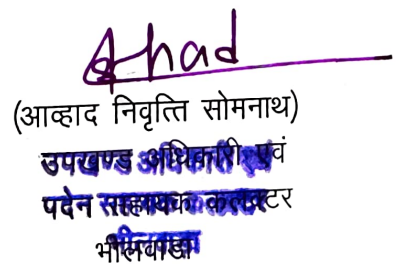 Ahad
(आव्हाद निवृत्ति सोमनाथ)
उपखण्ड अधिकारी एवं
पदेन सहायक कलक्टर
भीलवाडा